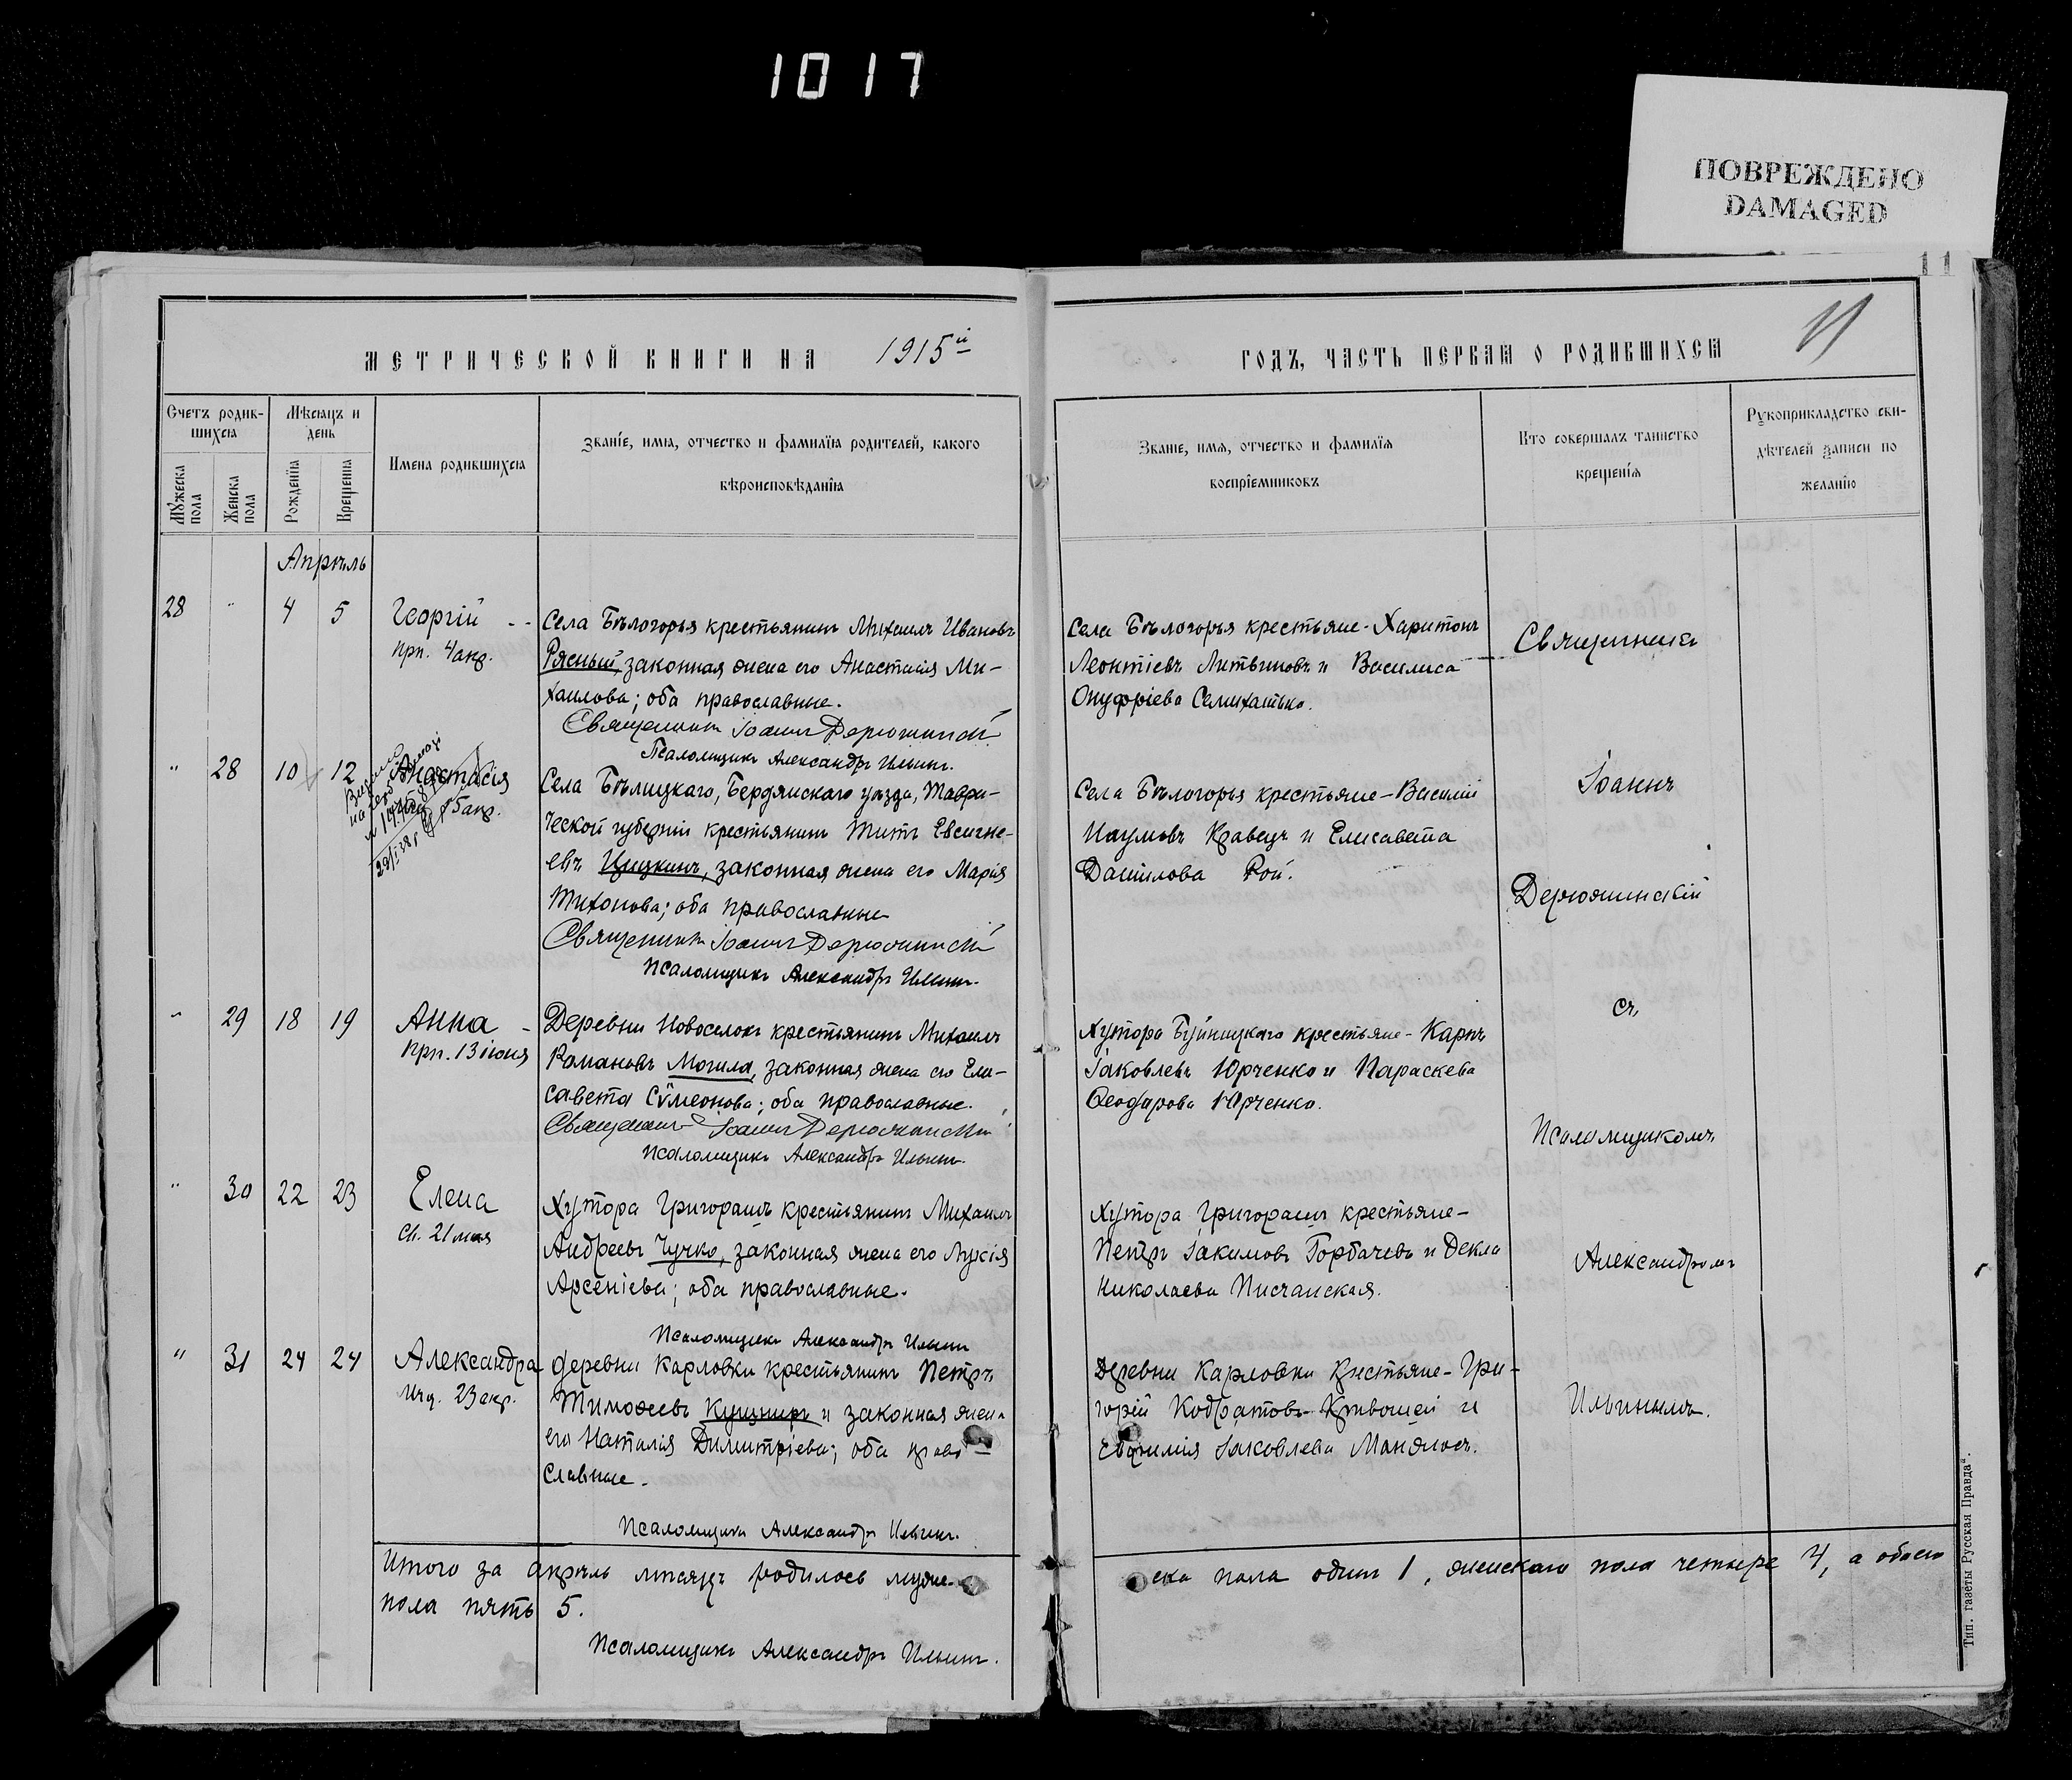 1017
ПОВРЕЖДЕНО
DAMAGED
11
МЕТРИЧЕСКОЙ КНИГИ НА 1915й
Счетъ родив-
шихся
Мѣсяцъ и
день
Мужеска
пола
Женска
пола
Рожденїя
Крещенїя
Имена родившихся
Званїе, имя, отчество и фамилїя родителей, какого
вѣроисповѣданїя
Апрѣль
28 " 4 5 Георгій - -
прп. 4 апр.
Села Бѣлогорья крестьянинъ Михаилъ Ивановъ
Рясный, законная жена его Анастасія Ми-
хаилова; оба православные.
Священникъ Іоаннъ Дерюжинскій
Псаломщикъ Александръ Ильинъ.
" 28 10 12 Анастасія
Села Бѣлицкаго, Бердянскаго уѣзда, Таври-
ческой губерніи крестьянинъ Титъ Евсигне-
евъ Цицкинъ, законная жена его Марія
Тихонова; оба православные
Священникъ Іоаннъ Дерюжинскій
Псаломщикъ Александръ Ильинъ.
" 29 18 19 Анна -
прп. 13 іюня
Деревни Новоселокъ крестьянинъ Михаилъ
Романовъ Могила, законная жена его Ели-
савета Сѵмеонова; оба православные.
Священникъ Іоаннъ Дерюжинскій
Псаломщикъ Александръ Ильинъ.
" 30 22 23 Елена
Св. 21 мая
Хутора Григорашъ крестьянинъ Михаилъ
Андреевъ Чучко, законная жена его Лукія
Арсеніева; оба православные.
Псаломщикъ Александръ Ильинъ
" 31 24 24 Александра
Мчц. 23 апр.
деревни Карловки крестьянинъ Петръ
Тимофеевъ Кушниръ и законная жена
его Наталія Димитріева; оба право-
славные.
Псаломщикъ Александръ Ильинъ.
Итого за апрѣль мѣсяцъ родилось муже-
пола пять 5.
Псаломщикъ Александръ Ильинъ.
11
ГОДЪ, ЧАСТЬ ПЕРВАЯ О РОДИВШИХСЯ
Званїе, имя, отчество и фамилїя
воспрїемниковъ
Кто совершалъ таинство
крещенїя
Рукоприкладство сви-
дѣтелей записи по
желанїю
Села Бѣлогорья крестьяне - Харитонъ
Леонтіевъ Литвиновъ и Василиса
Онуфріева Семихатько.
Священникъ
Села Бѣлогорья крестьяне - Василій
Наумовъ Кравецъ и Елисавета
Даніилова Рой.
Іоаннъ
Дерюжинскій
съ
Хутора Буйницкаго крестьяне - Карпъ
Іаковлевъ Юрченко и Параскева
Ѳеодорова Юрченко.
Псаломщикомъ
Хутора Григорашъ крестьяне -
Петръ Іакимовъ Горбачевъ и Ѳекла
Николаева Писчанская.
Александромъ
Деревни Карловки крестьяне - Гри-
горій Кодратовъ Кривошей и
Евфимія Іаковлева Манжосъ.
Ильинымъ.
ска пола одинъ 1, женскаго пола четыре 4, а обоего
Тип. газеты „Русская Правда“.